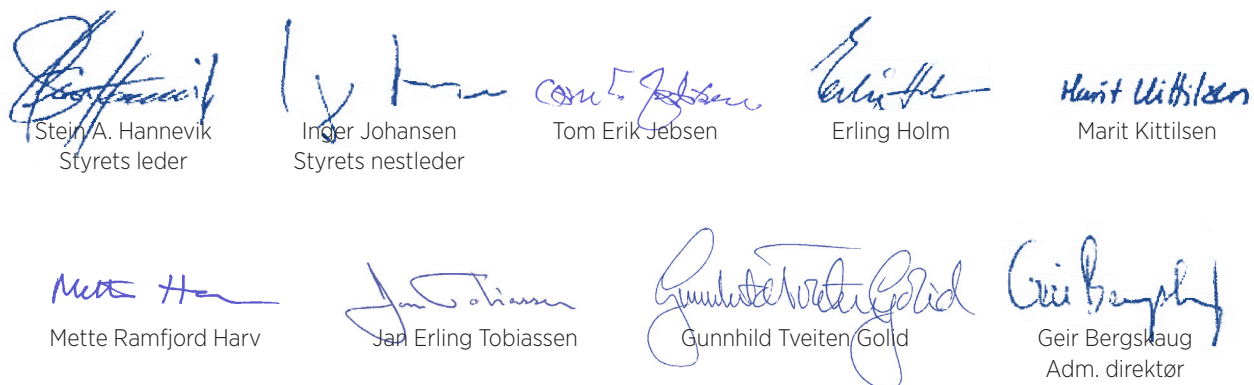 Stein A. Hannevik
Styrets leder
Inger Johansen
Styrets nestleder
Tom Erik Jebsen
Erling Holm
Marit Kittilsen
Mette Ramfjord Harv
Jan Erling Tobiassen
Gunnhild Tveiten Golid
Geir Bergskaug
Adm. direktør